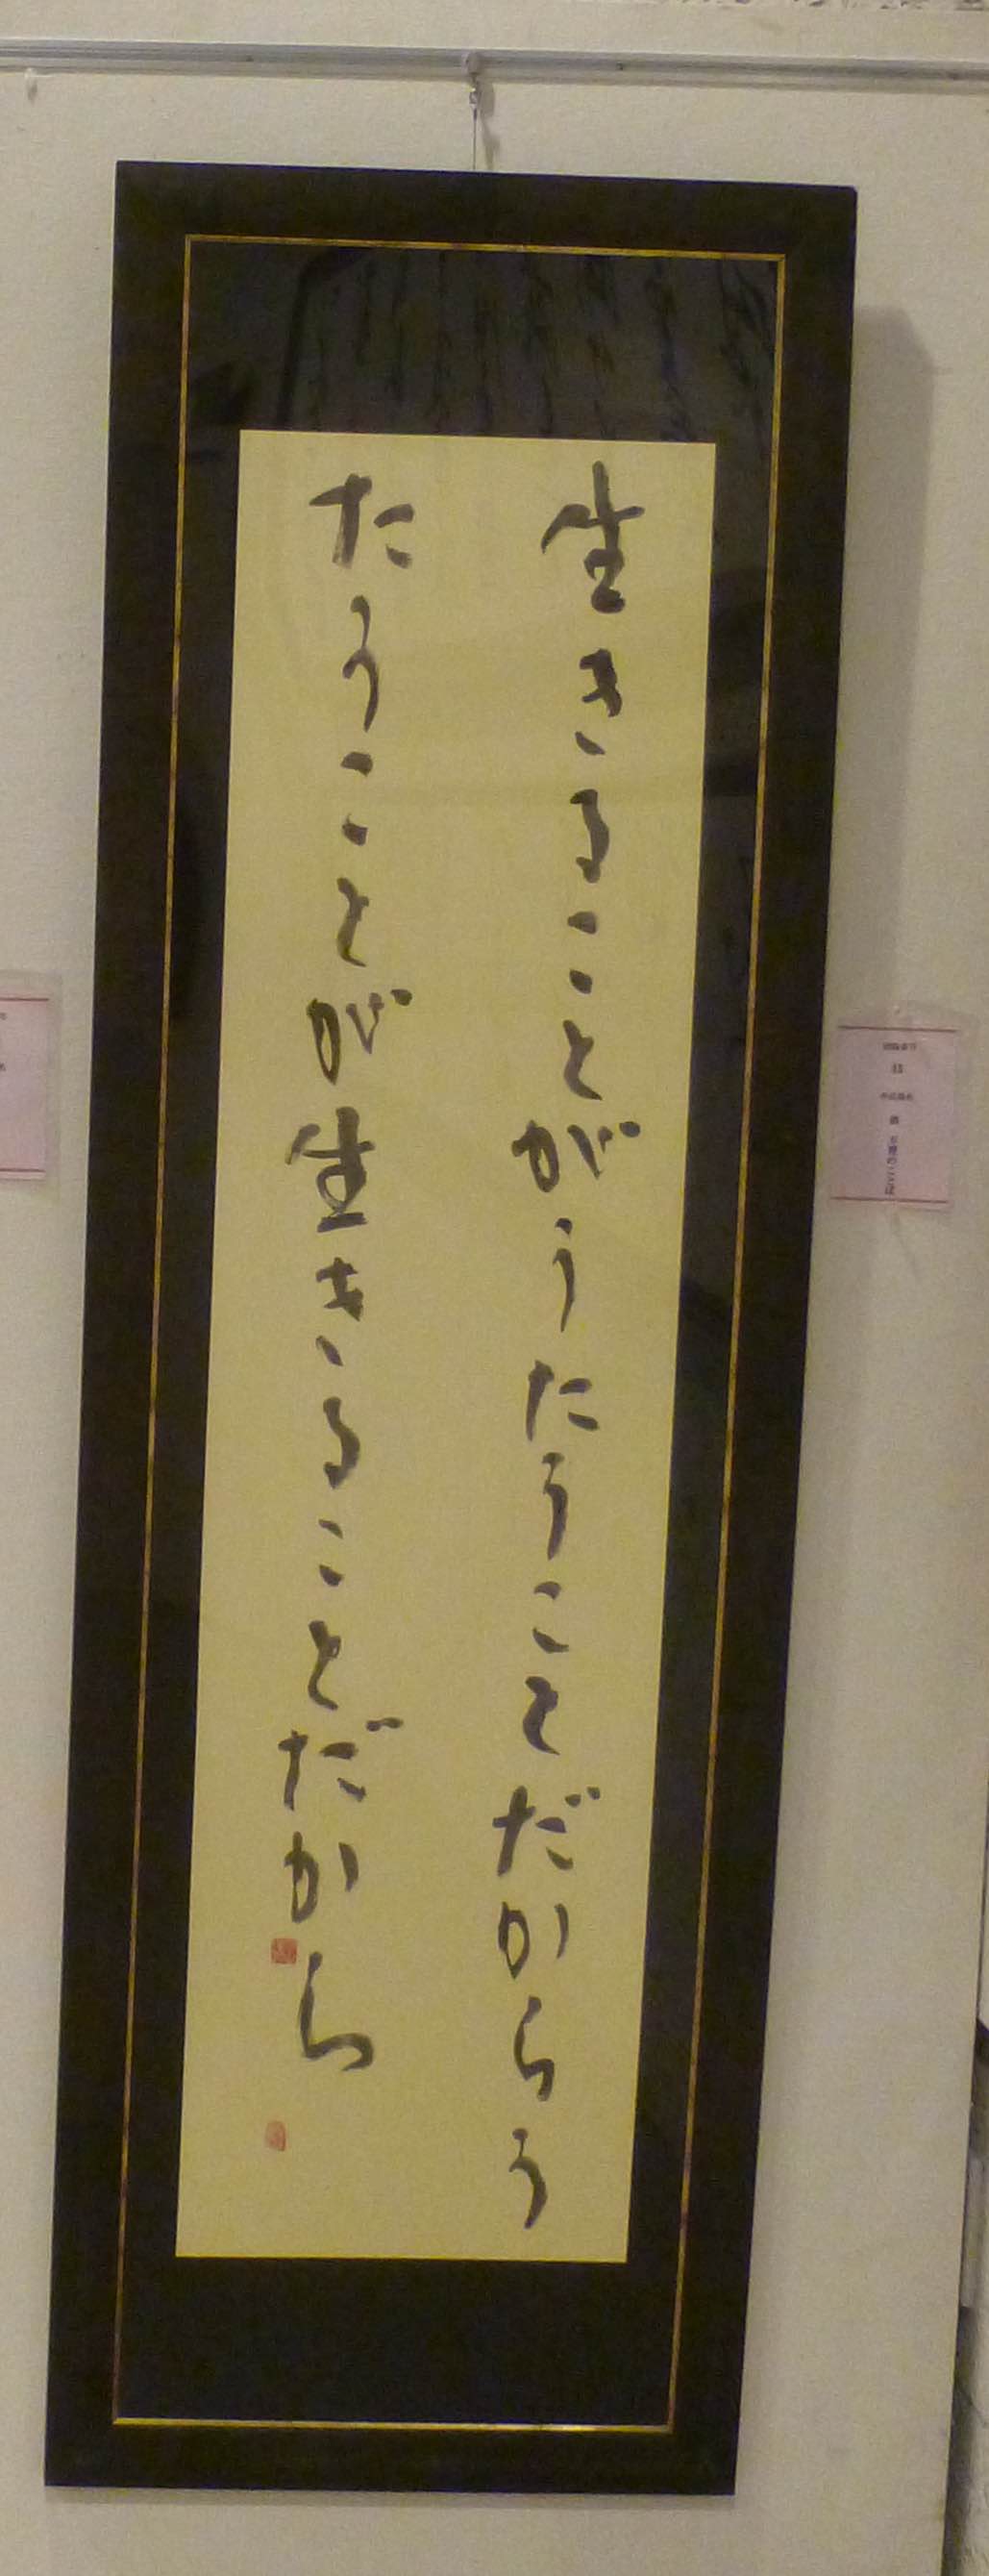 生きることがうたうことだからう
たうことが生きることだから